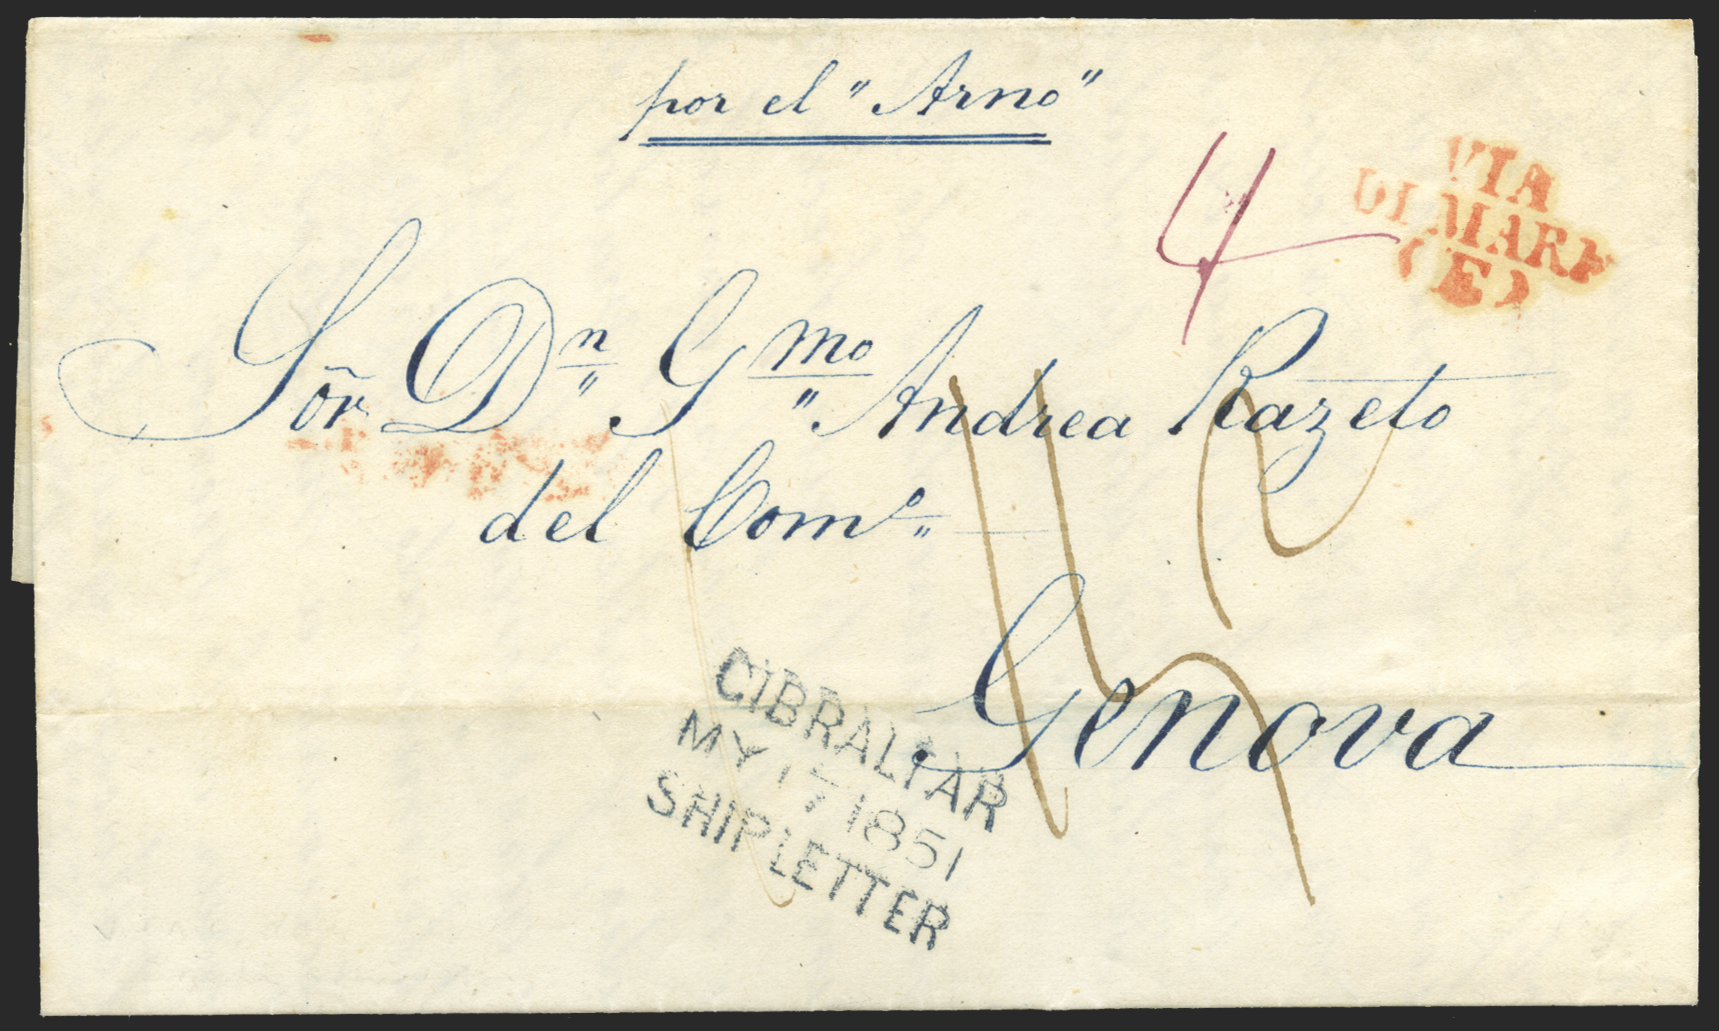 por el "Arno"
4
VIA
DI MARE
(E)
Sõr Dn G mo Andrea Razeto
del Como
Genova
GIBRALTAR
MY 17 1851
SHIP LETTER